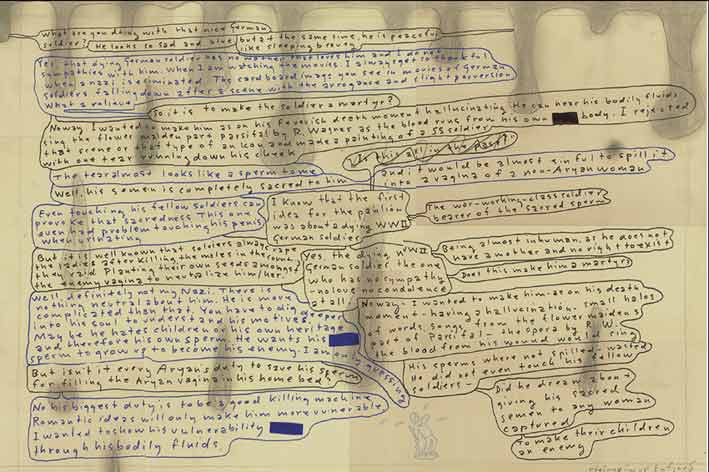 What are you doing with that nice German
soldier? He looks so sad and blue but at the same time, he is peaceful
like sleeping
Yet that dying German soldier has no mother that loves him and I do not
sympathies with him. When I am watching the movies I always get so thankful
when a nazi is eliminated. The cardboard image you see in movies of German
soldiers falling down after a scene with the arrogance and slight perversion
What a relieve
So it is to make the soldier a martyr?
Noway I wanted to make him as on his feverish death moment hallucinating. He can hear his bodily fluids
sing the flower maiden part Parsifal by R. Wagner as the blood runs from his own body. I rejected
that scene or that type of an icon and made a painting of a SS soldier
with one tear running down his cheek.
Is this all in the past?
The tear almost looks like a sperm to me
Well, his semen is completely sacred to him
and it would be almost sinful to spill it
into a vagina of a non-Aryan woman
Even touching his fellow soldiers can
provoke that sacredness This one
even had problem touching his penis
when urinating
I know that the first
idea for the pavilion
was about a dying WWII
German soldier
The war-working-class soldier
bearer of the sacred sperm
But it is well known that soldiers always rape
the ladies after killing the males in the country
they raid Planting their own seeds amongst
the enemy vagina to neutralize him/her
Yes, the dying WWII
German soldier the one
who has no sympathy
no love no condolence
at all
Being almost inhuman, as he does not
have a mother and no right to exist
Does this make him a martyr?
Well, definitely not my Nazi. There is
nothing neutral about him. He is more
complicated than that. You have to dig deeper
into his soul to understand his motives
May be he hates children or his own heritage
and therefore his own sperm. He wants his
sperm to grow up to become his enemy. I am only guessing
Noway- I wanted to make him-as on his death
moment - having a hallucination. small halos
words, songs, from the flower maidens
part of Parsifal - the opera by R. W.
the blood from his wound would ring
But isn't it every Aryan's duty to save his sperm
for filling the Aryan vagina in his home bed
His sperms where not spilled or wasted
He did not even touch his fellow
soldiers -
No his biggest duty is to be a good killing machine
Romantic ideas will only make him more vulnerable
I wanted to show his vulnerability
through his bodily fluids.
Did he dream about
giving his sacred
semen to any woman
captured
To make their children
an enemy